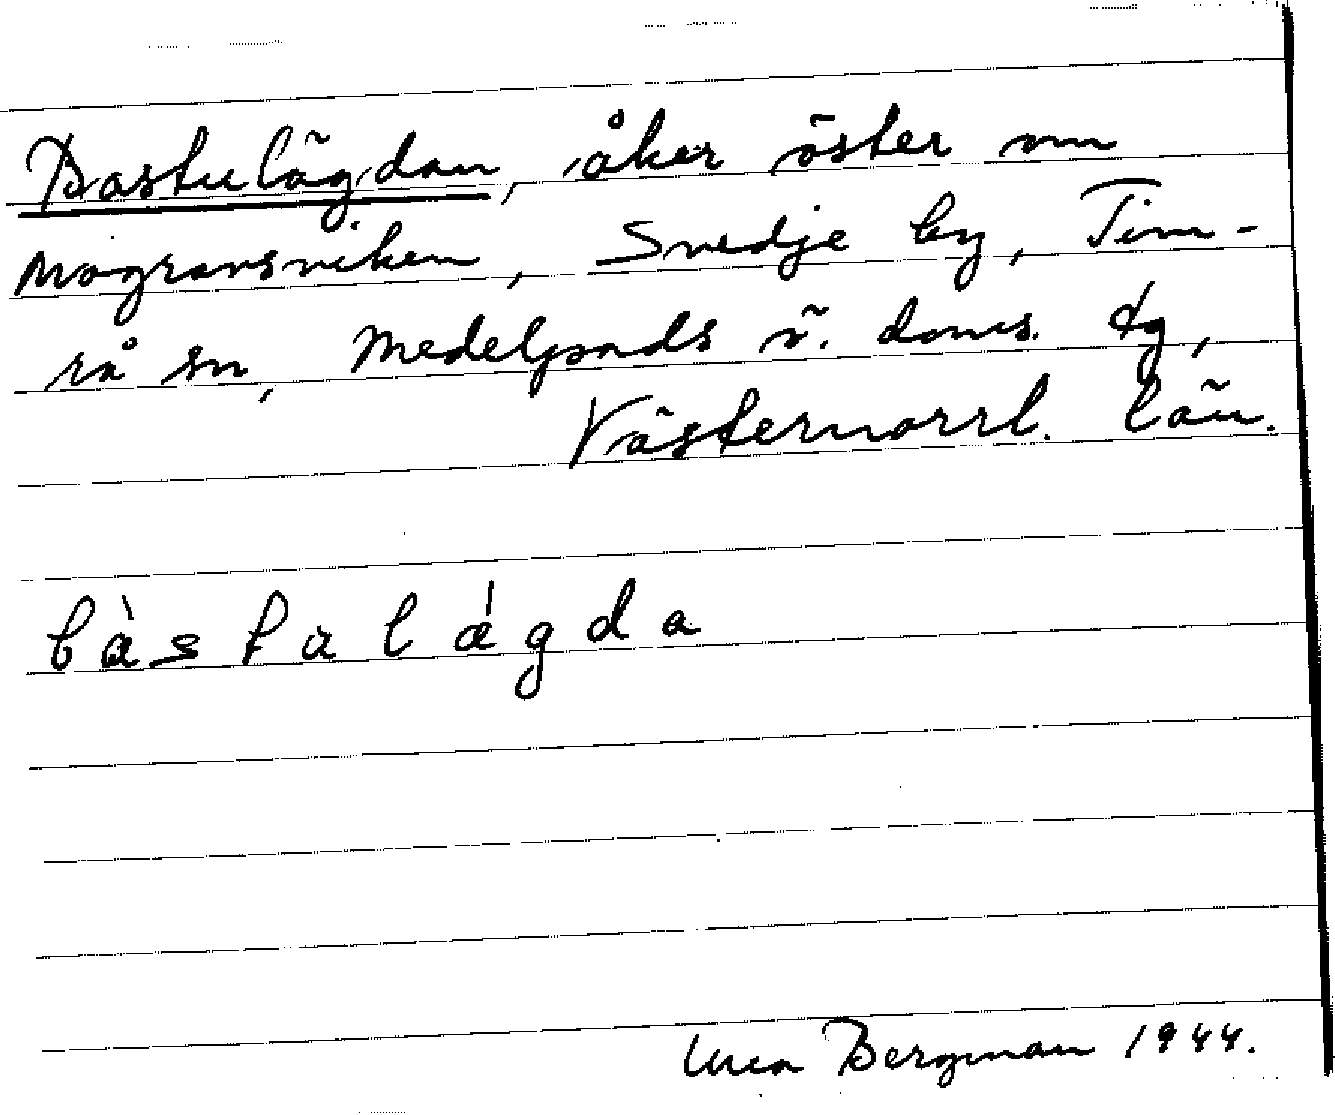 Bastulägdan, åker öster om
Mogransviken, Svedje by, Tim-
rå sn, Medelpads ö. doms. tg,
Västernorrl. län.
bàstalǽgda
Unea Bergman 1944.